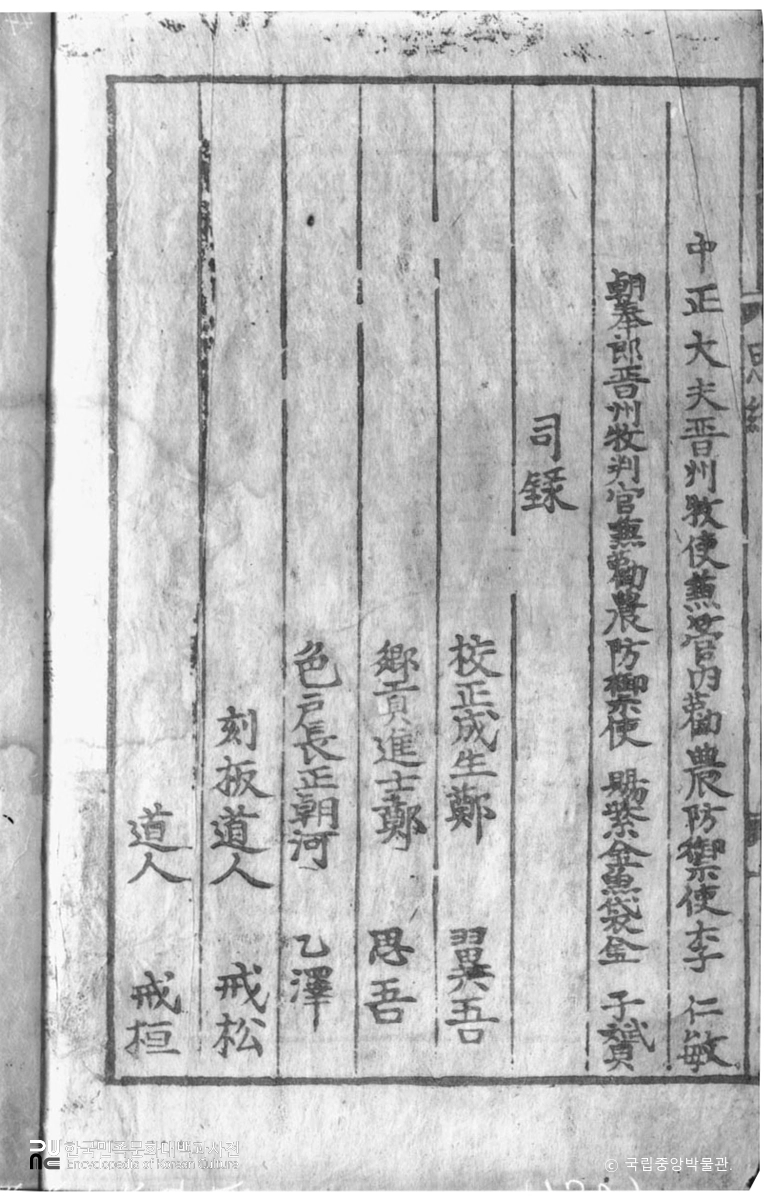 中正大夫晋州牧使兼管内勸農防禦使李 仁敏
朝奉郎晋州牧判官兼勸農防禦使 賜紫金魚袋金 子贇
司錄
校正成生鄭 翼吾
鄕貢進士鄭 思吾
色戶長正朝河 乙澤
刻板道人 戒松
道人 戒桓
한국민족문화대백과사전
Encyclopedia of Korean Culture
© 국립중앙박물관.